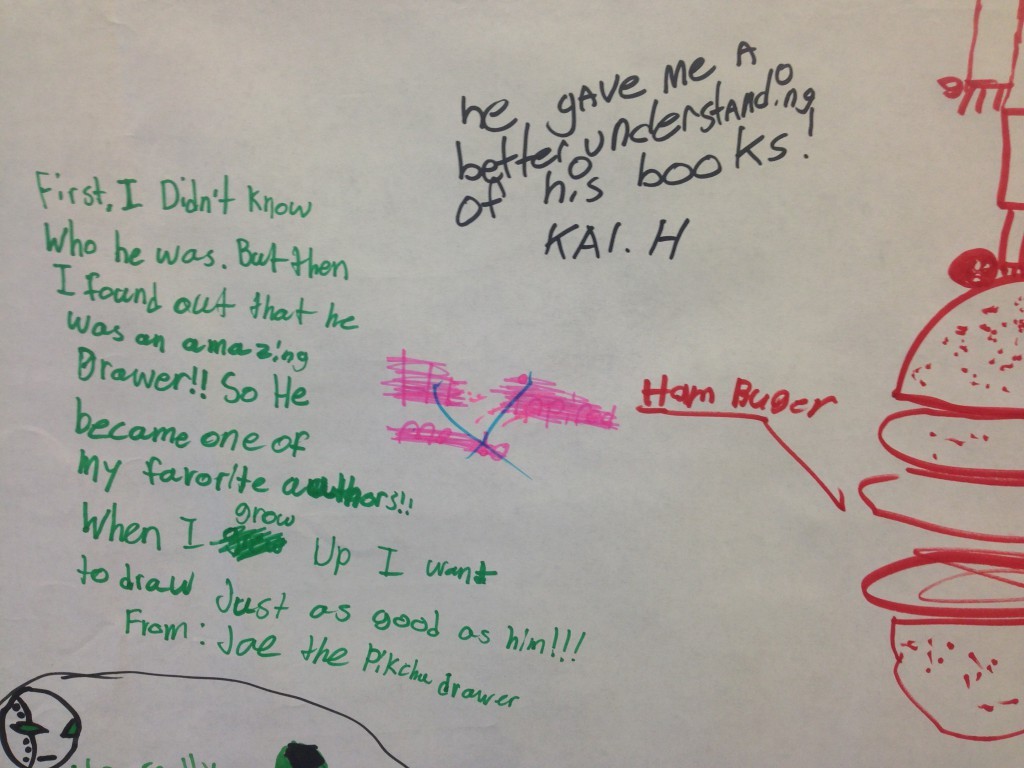 he gave me A
better understanding
of his books!
KAI. H
First, I Didn't know
Who he was. But then
I found out that he
was an amazing
Drawer!! So He
became one of
my favorite authors!!
When I grow Up I want
to draw Just as good as him!!!
From: Jae the Pikchu drawer
Ham Buger